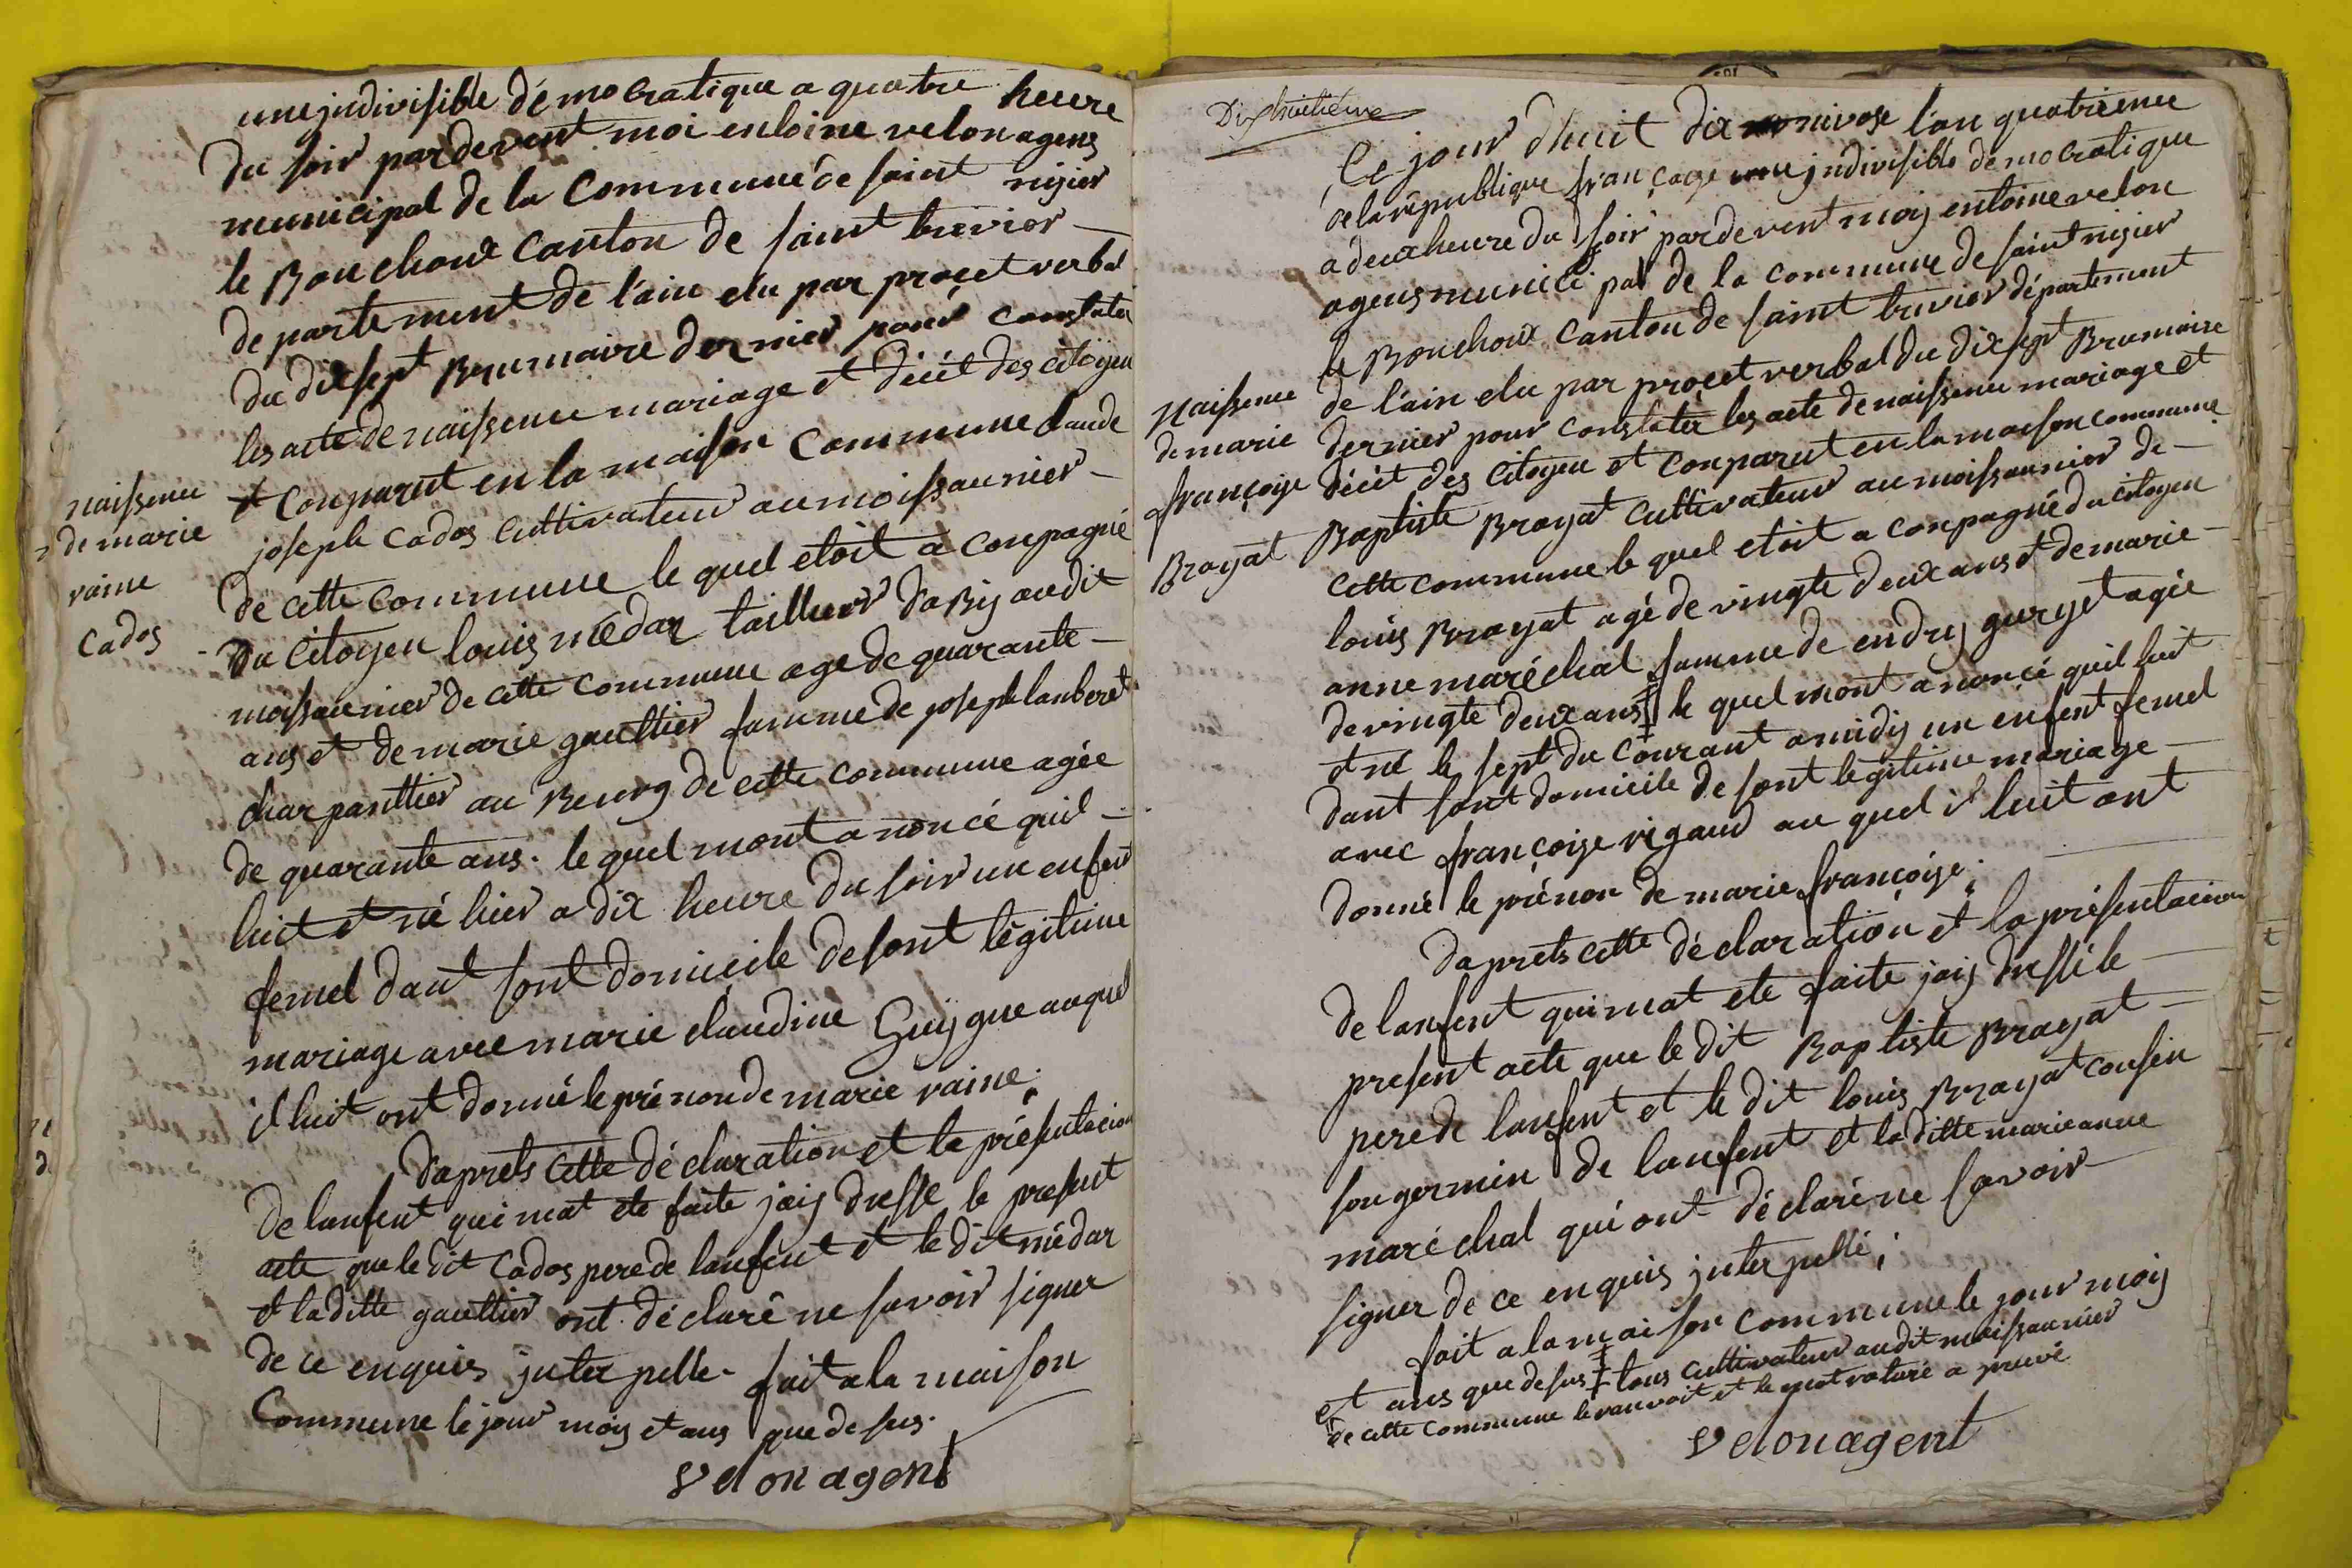 une jndivisible démocratique a quatre heure
du soir pardevent moi entoine velon agens
municipal de la Commune de saint nizier
le Bouchoux canton de saint trivier
departement de l'ain elu par procet verbal
du dixsept Brumaire dernier pour constater
les acte de naissence mariage et décit des citoyen
et conparut en la maison commune claude
joseph Cados cultivateur au moissaunier
de cette commune le quel etoit a conpagné
du citoyen louis médar tailleur dabij audit
moissaunier de cette commune age de quarante
ans et de marie gaultier famme de joseph lanberet
charpanttier au Bourg de cette commune agée
de quarante ans. le quel mont anoncé quil
luit et né hier a dix heure du soir un enfent
femel dant sont domicile de sont légitime
mariage avec marie claudine Guygue auquel
il luit ont donné le prénon de marie raine;
daprets cette déclaration et la présentacion
de lanfent qui mat ete faite jaij dressé le present
acte que le dit Cados pere de lanfent et le dit médar
et la ditte gaultier ont déclaré ne savoir signer
de ce enquis juter pellé fait a la maison
Commune le jour mois et ans que desus.
velon agent
naissence
de marie
raine
Cados
Dixhuitième
Ce jour dhuit dix nivose l'an quatrieme
de la republique françaze une jndivisible démocratique
a deux heure du soir pardevent moij entoine velon
agens municipal de la commune de saint nizier
le Bouchoux canton de saint trivier département
de l'ain elu par procet verbal du dixsept Brumaire
dernier pour constater les acte de naissence mariage et
décit des citoyen et conparut en la maison commune
Baptiste Brayat cultivateur au moissaunier de
cette commune le quel etoit a conpagné du citoyen
louis Brayat agé de vingte deux ans et de marie
anne maréchal famme de endrij guryet agée
de vingte deux ans ‡ le quel mont anoncé quil luit
et né le sept du courant a midij un enfent femel
dant sont domicile de sont legitime mariage
avec françoize rigaud au quel il luit ont
donné le prénon de marie françoize;
daprets cette déclaration et la présentacion
de lanfent qui mat ete faite jaij dressé le
present acte que le dit Baptiste Brayat
pere de lanfent et le dit louis Brayat cousin
son germin de lanfent et la ditte marie anne
maréchal qui ont déclaré ne savoir
signer de ce enquis juter pellé;
fait a la maison commune le jour mois
et ans que desus ‡ tous cultivateur audit moissaunier
de cette commune le ranvoit et le mot raturé a pruvé
velon agent
Naissence
de marie
françoize
Brayat